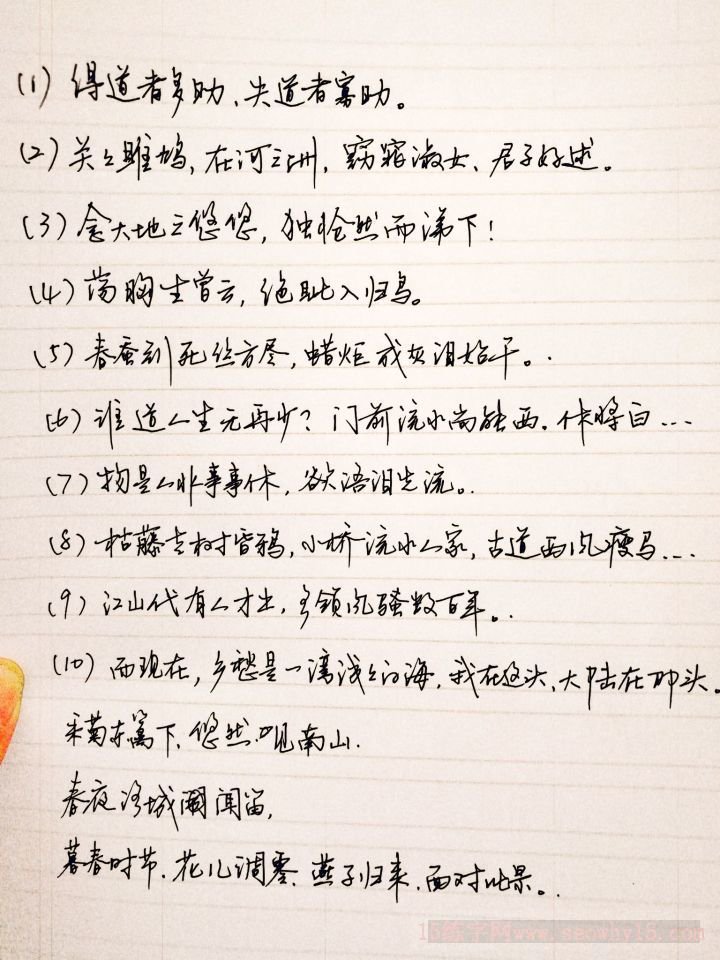 (1) 得道者多助、失道者寡助。
(2) 关关雎鸠，在河之洲，窈窕淑女、君子好逑。
(3) 念天地之悠悠，独怆然而涕下！
(4) 荡胸生曾云，绝眦入归鸟。
(5) 春蚕到死丝方尽，蜡炬成灰泪始干。.
(6) 谁道人生无再少？门前流水尚能西。休将白...
(7) 物是人非事事休，欲语泪先流。.
(8) 枯藤老树昏鸦，小桥流水人家，古道西风瘦马...
(9) 江山代有人才出，各领风骚数百年。.
(10) 而现在，乡愁是一湾浅浅的海，我在这头、大陆在那头。
采菊东篱下、悠然见南山.
春夜洛城闻笛，
暮春时节、花儿凋零、燕子归来、面对此景。.
15练字网www.seowhy15.com